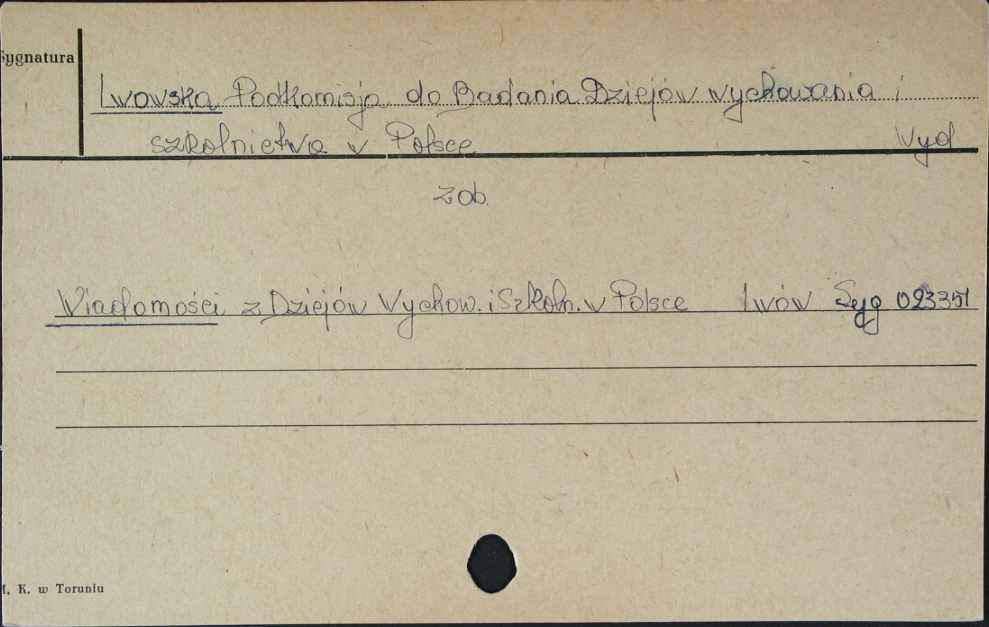 Sygnatura
Lwowska Podkomisja do Badania Dziejów wychowania i
szkolnictwa w Polsce Wyd
zob.
Wiadomości z Dziejów Wychow. i Szkoln. w Polsce Lwów Syg 023351
M. K. w Toruniu